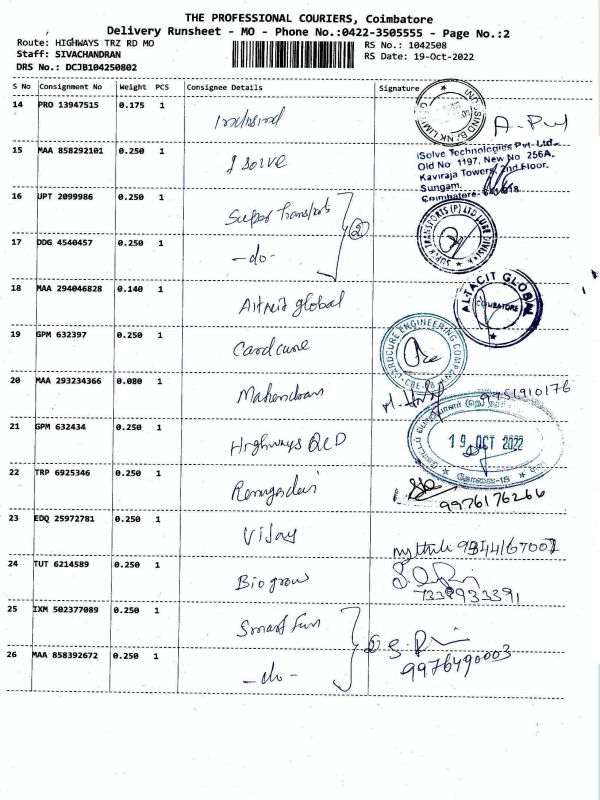 THE PROFESSIONAL COURIERS, Coimbatore
Delivery Runsheet - MO - Phone No.:0422-3505555 - Page No.:2
Route: HIGHWAYS TRZ RD MO
RS No.: 1042508
Staff: SIVACHANDRAN
RS Date: 19-Oct-2022
DRS No.: DCJB104250802
S No Consignment No Weight PCS Consignee Details Signature
14 PRO 13947515 0.175 1 Indusind
15 MAA 858292101 0.250 1 I solve
iSolve Technologies Pvt. Ltd.
Old No 1197, New No 256A,
Kaviraja Towers, 2nd Floor,
Sungam,
Coimbatore
16 UPT 2099986 0.250 1 Super Transports
SUPER TRANSPORTS (P) LTD
17 DDG 4540457 0.250 1 -do- 2
18 MAA 294046828 0.140 1 Altacit global
ALTACIT GLOBAL
COIMBATORE
19 GPM 632397 0.250 1 Cardcure
CARDCURE ENGINEERING COMPANY
20 MAA 293234366 0.080 1 Mahendran 9751910176
21 GPM 632434 0.250 1 Highways QCD
19 OCT 2022
கோவை-18
22 TRP 6925346 0.250 1 9976176266
23 EDQ 25972781 0.250 1 Vijay
24 TUT 6214589 0.250 1 Biogrow 7339933391
25 IXM 502377089 0.250 1 Smart fun
26 MAA 858392672 0.250 1 -do- 9976490003